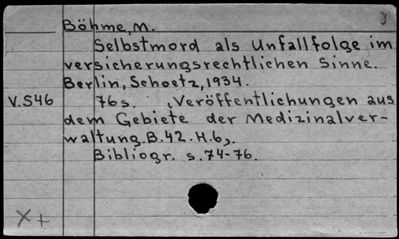 3
Böhme, M.
Selbstmord als Unfallfolge im
versicherungsrechtlichen Sinne.
Berlin, Schoetz, 1934.
V.546 76 s. (Veröffentlichungen aus
dem Gebiete der Medizinalver-
waltung. B.42. H.6).
Bibliogr. s. 74-76.
X +